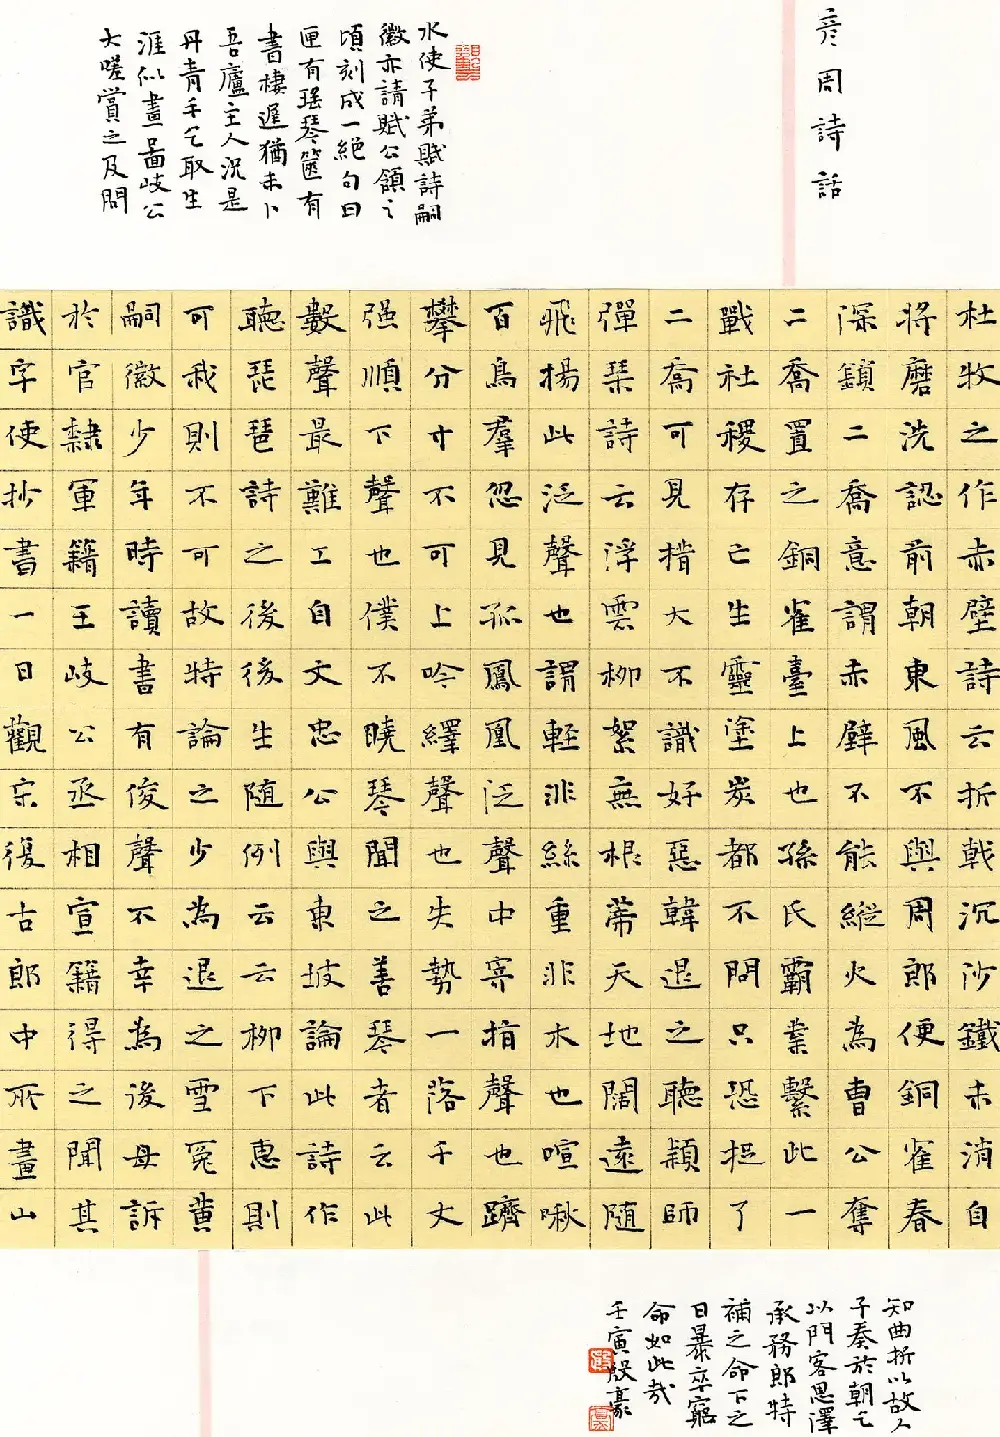 彦周詩話
杜牧之作赤壁詩云折戟沉沙鐵未消自
將磨洗認前朝東風不與周郎便銅雀春
深鎖二喬意謂赤壁不能縱火為曹公奪
二喬置之銅雀臺上也孫氏霸業繫此一
戰社稷存亡生靈塗炭都不問只恐捉了
二喬可見措大不識好惡韓退之聽穎師
彈琴詩云浮雲柳絮無根蒂天地闊遠隨
飛揚此泛聲也謂輕非絲重非木也喧啾
百鳥羣忽見孤鳳凰泛聲中寄指聲也躋
攀分寸不可上吟繹聲也失勢一落千丈
强順下聲也僕不曉琴聞之善琴者云此
數聲最難工自文忠公與東坡論此詩作
聽琵琶詩之後後生隨例云云柳下惠則
可我則不可故特論之少為退之雪冤黄
嗣徽少年時讀書有俊聲不幸為後母訴
於官隸軍籍王岐公丞相宣籍得之聞其
識字使抄書一日觀宋復古郎中所畫山
水使子弟賦詩嗣
徽亦請賦公領之
頃刻成一絕句曰
匣有瑤琴篋有
書棲遲猶未卜
吾廬主人況是
丹青手乞取生
涯似畫圖岐公
大嗟賞之及問
知曲折以故人
子奏於朝乞
以門客恩澤
承務郎特
補之命下之
日暴卒窮
命如此哉
壬寅殷豪